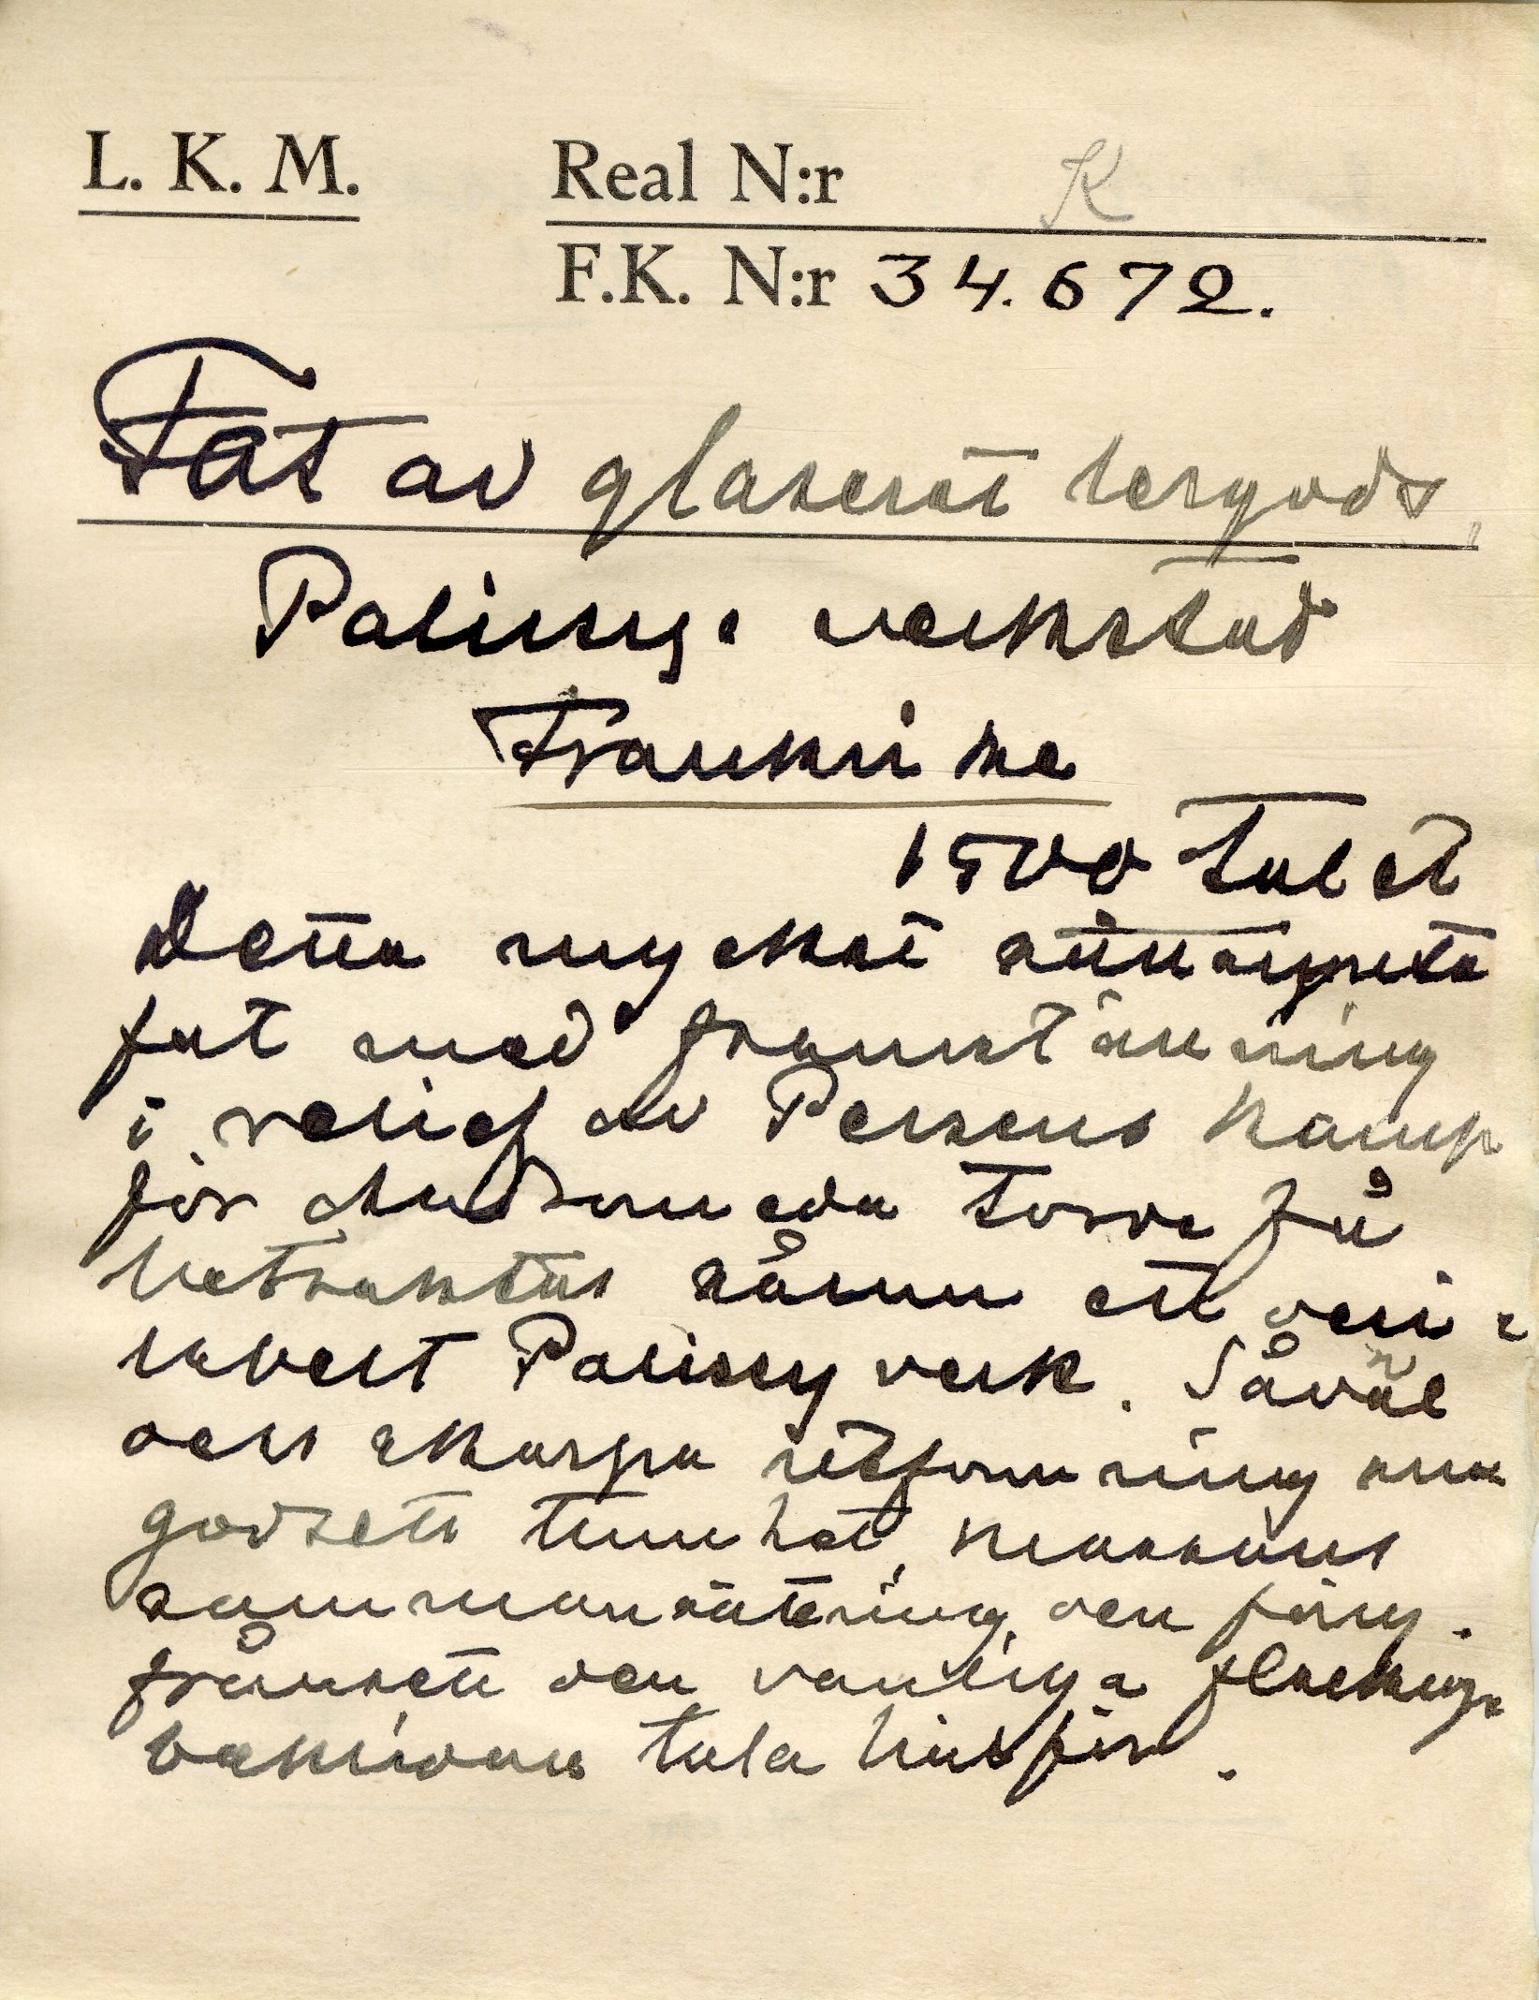 L. K. M.
Real N:r K
F.K. N:r 34.672.
Fat av glaserat lergods,
Palissys verkstad
Frankrike
1500 talet
Detta mycket sällsynta
fat med framställning
i relief av Perseus kamp
för Andromeda torde få
betraktas såsom ett veri-
tabelt Palissy verk. Såväl
den skarpa utformning som
godsets tunnhet, massans
sammansättning, den färg-
frånsett den vanliga fläckiga
baksidan tala härför.